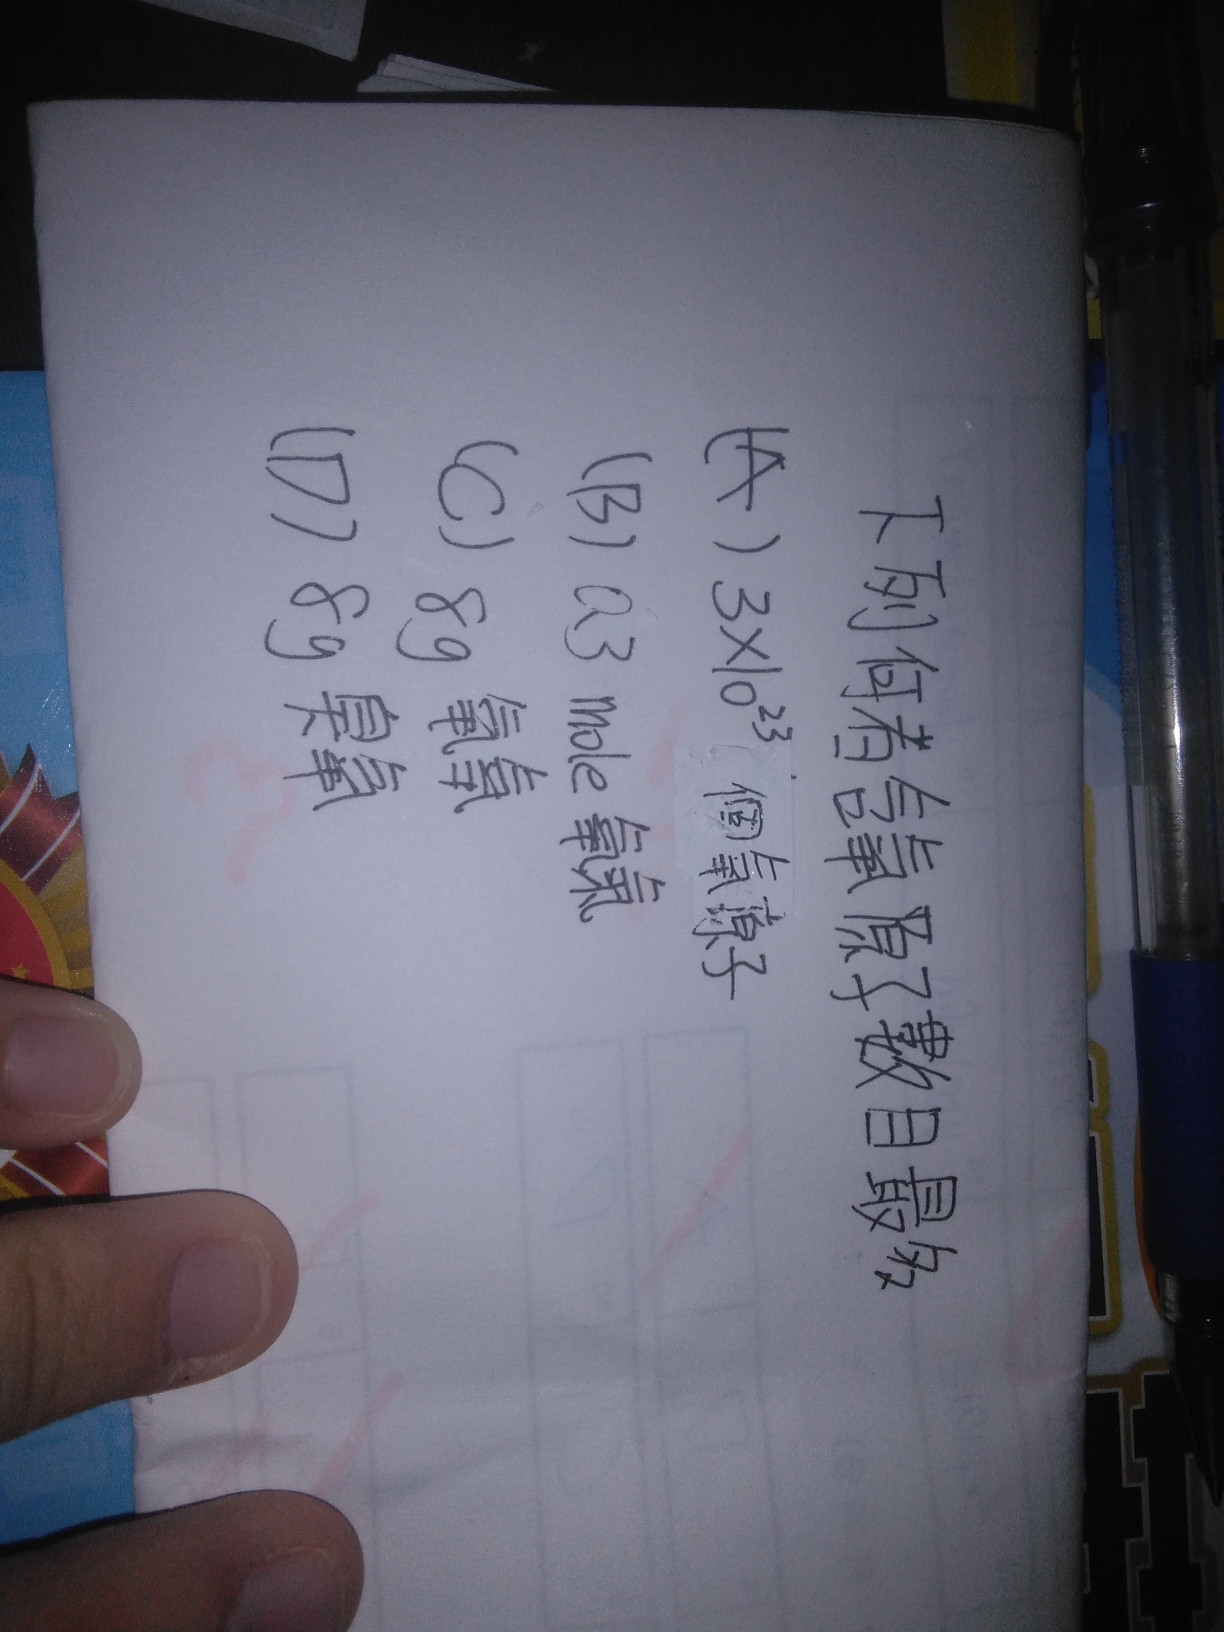 下列何者含氧原子數目最多
(A) 3×10²³ 個氧原子
(B) 0.3 mole 氧氣
(C) 8g 氧氣
(D) 8g 臭氧